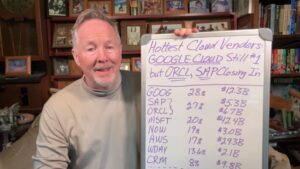 Hottest Cloud Vendors:
GOOGLE CLOUD Still #1
but ORCL, SAP Closing In
GOOG 28% $12.3B
SAP } 27% $5.3B
ORCL } $6.7B
MSFT 20%
NOW 19% $3.0B
AWS 17% $29.3B
WDAY 13.6% $2.1B
CRM 8% $9.8B